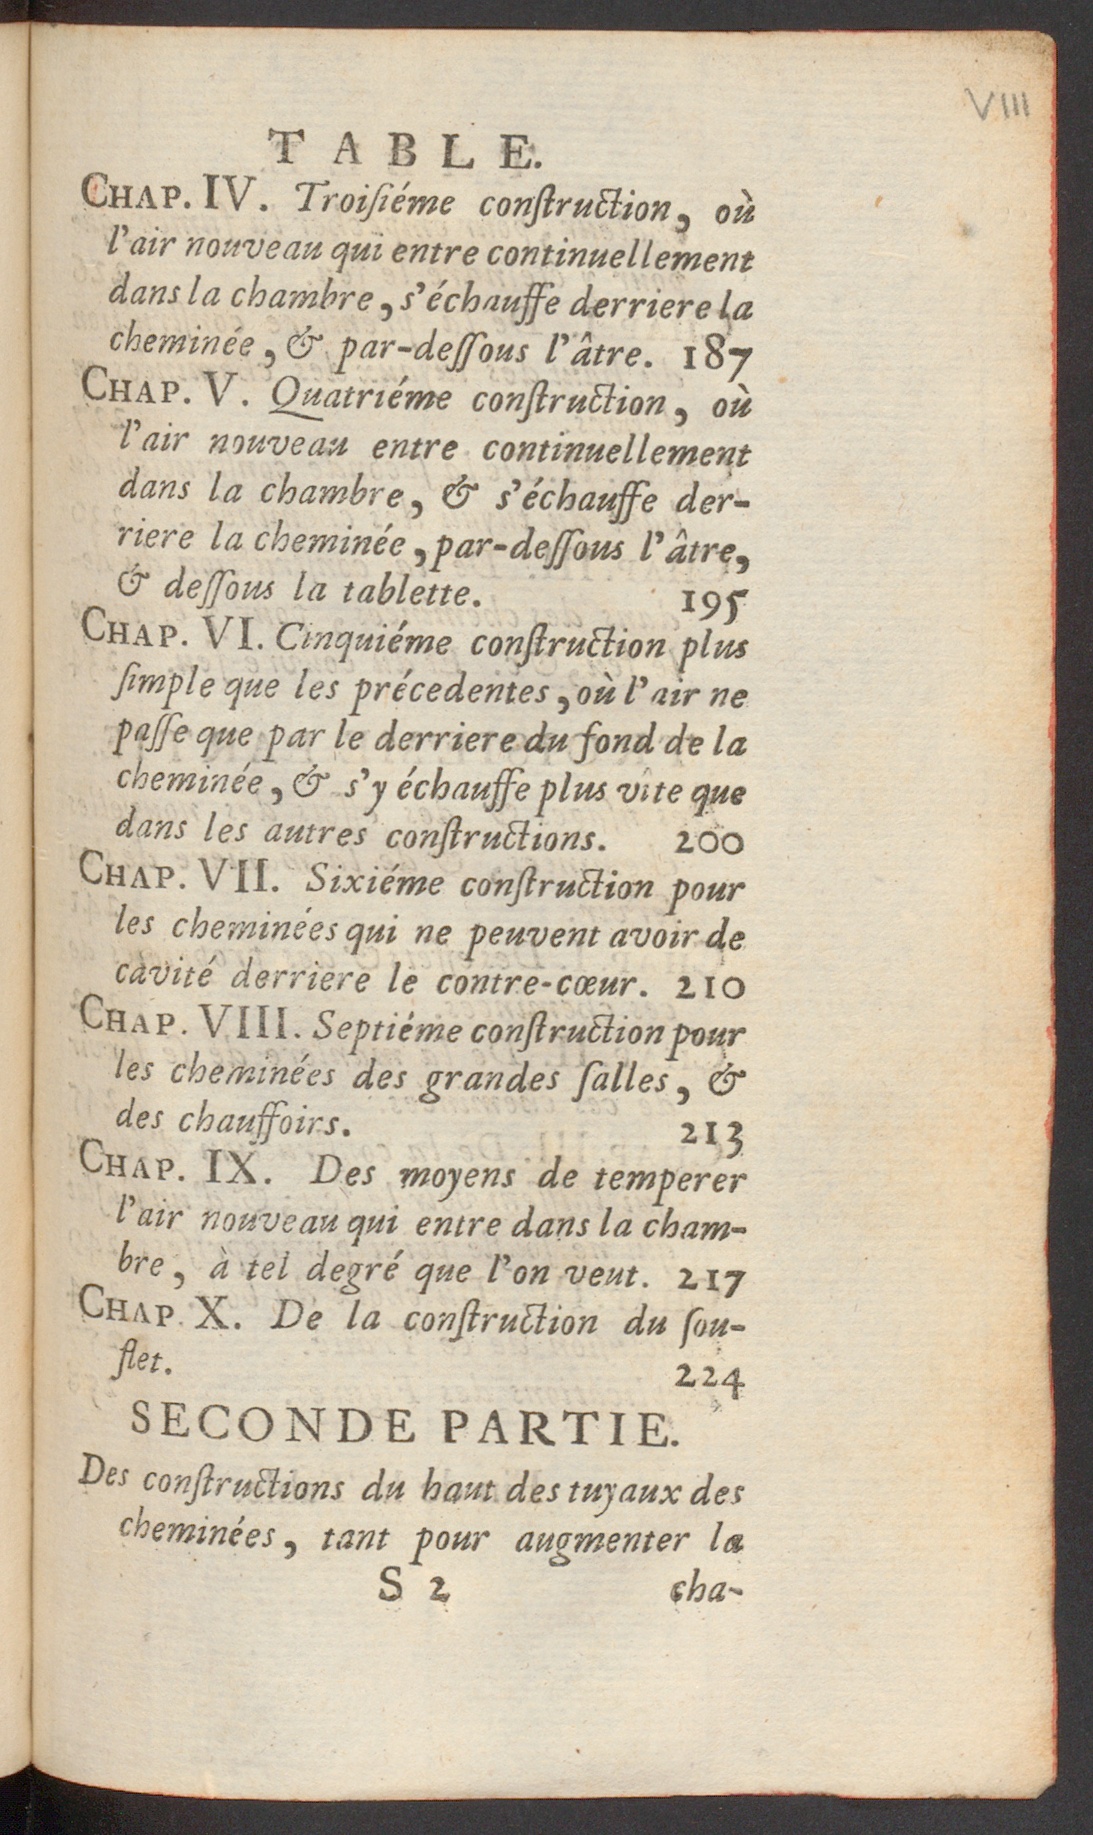 VIII
TABLE.
CHAP. IV. Troiſiéme conſtruction, où
l'air nouveau qui entre continuellement
dans la chambre, s'échauffe derriere la
cheminée, & par-deſſous l'âtre. 187
CHAP. V. Quatriéme conſtruction, où
l'air nouveau entre continuellement
dans la chambre, & s'échauffe der-
riere la cheminée, par-deſſous l'âtre,
& deſſous la tablette. 195
CHAP. VI. Cinquiéme conſtruction plus
ſimple que les précedentes, où l'air ne
paſſe que par le derriere du fond de la
cheminée, & s'y échauffe plus vîte que
dans les autres conſtructions. 200
CHAP. VII. Sixiéme conſtruction pour
les cheminées qui ne peuvent avoir de
cavité derriere le contre-cœur. 210
CHAP. VIII. Septiéme conſtruction pour
les cheminées des grandes ſalles, &
des chauffoirs. 213
CHAP. IX. Des moyens de temperer
l'air nouveau qui entre dans la cham-
bre, à tel degré que l'on veut. 217
CHAP. X. De la conſtruction du ſou-
flet. 224
SECONDE PARTIE.
Des conſtructions du haut des tuyaux des
cheminées, tant pour augmenter la
S 2 cha-